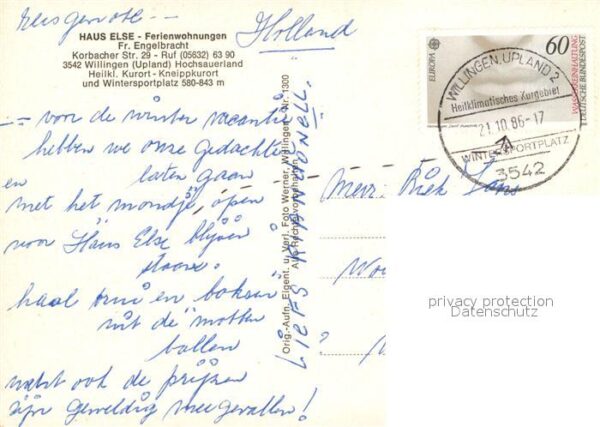 reisgenote --
Holland
HAUS ELSE - Ferienwohnungen
Fr. Engelbracht
Korbacher Str. 29 - Ruf (05632) 63 90
3542 Willingen (Upland) Hochsauerland
Heilkl. Kurort - Kneippkurort
und Wintersportplatz 580-843 m
EUROPA
60
WASSERREINHALTUNG
DEUTSCHE BUNDESPOST
WILLINGEN, UPLAND 2
Heilklimatisches Kurgebiet
21.10.86-17
WINTERSPORTPLATZ
3542
-- voor de winter vacantie
hebben we onze gedachten
en laten gaan
met het mondje open
voor Haus Else blijven
staan.
haal trui en
uit de motten
ballen
want ook de prijzen
zijn geweldig meegevallen!
Orig.-Aufn. Eigent. u. Verl. Foto Werner, Willingen, Nr. 1300
Alle Rechte vorbehalten
LIEFS
Riek
privacy protection
Datenschutz